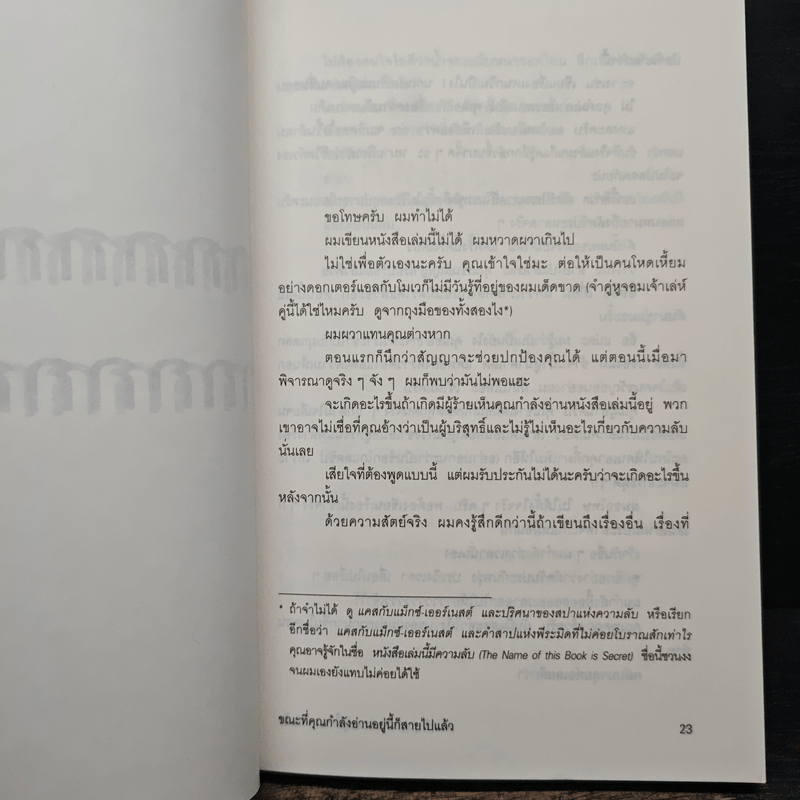 ขอโทษครับ ผมทำไม่ได้
ผมเขียนหนังสือเล่มนี้ไม่ได้ ผมหวาดผวาเกินไป
ไม่ใช่เพื่อตัวเองนะครับ คุณเข้าใจใช่มะ ต่อให้เป็นคนโหดเหี้ยม
อย่างดอกเตอร์แอลกับโมเวก็ไม่มีวันรู้ที่อยู่ของผมเด็ดขาด (จำคู่หูจอมเจ้าเล่ห์
คู่นี้ได้ใช่ไหมครับ ดูจากถุงมือของทั้งสองไง*)
ผมผวาแทนคุณต่างหาก
ตอนแรกก็นึกว่าสัญญาจะช่วยปกป้องคุณได้ แต่ตอนนี้เมื่อมา
พิจารณาดูจริง ๆ จัง ๆ ผมก็พบว่ามันไม่พอแฮะ
จะเกิดอะไรขึ้นถ้าเกิดมีผู้ร้ายเห็นคุณกำลังอ่านหนังสือเล่มนี้อยู่ พวก
เขาอาจไม่เชื่อที่คุณอ้างว่าเป็นผู้บริสุทธิ์และไม่รู้ไม่เห็นอะไรเกี่ยวกับความลับ
นั่นเลย
เสียใจที่ต้องพูดแบบนี้ แต่ผมรับประกันไม่ได้นะครับว่าจะเกิดอะไรขึ้น
หลังจากนั้น
ด้วยความสัตย์จริง ผมคงรู้สึกดีกว่านี้ถ้าเขียนถึงเรื่องอื่น เรื่องที่
* ถ้าจำไม่ได้ ดู แคสกับแม็กซ์-เออร์เนสต์ และปริศนาของสปาแห่งความลับ หรือเรียก
อีกชื่อว่า แคสกับแม็กซ์-เออร์เนสต์ และคำสาปแห่งพีระมิดที่ไม่ค่อยโบราณสักเท่าไร
คุณอาจรู้จักในชื่อ หนังสือเล่มนี้มีความลับ (The Name of this Book is Secret) ชื่อนี้ชวนงง
จนผมเองยังแทบไม่ค่อยได้ใช้
ขณะที่คุณกำลังอ่านอยู่นี้ก็สายไปแล้ว
23